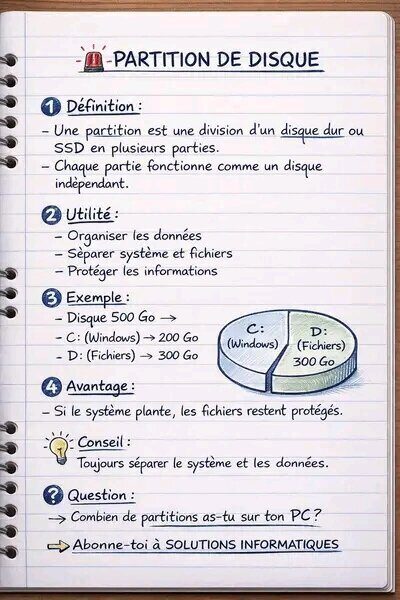 PARTITION DE DISQUE
1 Définition :
- Une partition est une division d'un disque dur ou
SSD en plusieurs parties.
- Chaque partie fonctionne comme un disque
indépendant.
2 Utilité :
- Organiser les données
- Sèparer système et fichiers
- Protéger les informations
3 Exemple :
- Disque 500 Go →
- C: (Windows) → 200 Go
- D: (Fichiers) → 300 Go
C:
(Windows)
D:
(Fichiers)
300 Go
4 Avantage :
- Si le système plante, les fichiers restent protégés.
Conseil :
Toujours séparer le système et les données.
? Question :
→ Combien de partitions as-tu sur ton PC ?
⇨ Abonne-toi à SOLUTIONS INFORMATIQUES